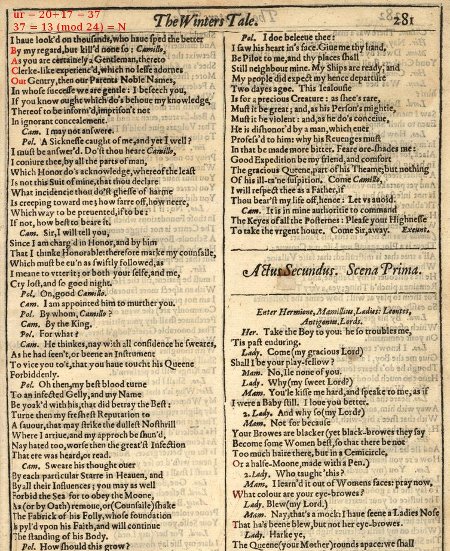 ur = 20+17 = 37
37 = 13 (mod 24) = N
The Winters Tale.
281
I haue look'd on thouſands, who haue ſped the better
By my regard, but kill'd none ſo: Camillo,
As you are certainely a Gentleman, thereto
Clerke-like experienc'd, which no leſſe adornes
Our Gentry, then our Parents Noble Names,
In whoſe ſucceſſe we are gentle: I beſeech you,
If you know ought which do's behoue my knowledge,
Thereof to be inform'd, impriſon't not
In ignorant concealement.
Cam. I may not anſwere.
Pol. A Sickneſſe caught of me, and yet I well?
I muſt be anſwer'd. Do'ſt thou heare Camillo,
I coniure thee, by all the parts of man,
Which Honor do's acknowledge, whereof the leaſt
Is not this Suit of mine, that thou declare
What incidencie thou do'ſt gheſſe of harme
Is creeping toward me; how farre off, how neere,
Which way to be preuented, if to be:
If not, how beſt to beare it.
Cam. Sir, I will tell you,
Since I am charg'd in Honor, and by him
That I thinke Honorable: therefore marke my counſaile,
Which muſt be eu'n as ſwiftly followed, as
I meane to vtter it; or both your ſelfe, and me,
Cry loſt, and ſo good night.
Pol. On, good Camillo.
Cam. I am appointed him to murther you.
Pol. By whom, Camillo?
Cam. By the King,
Pol. For what?
Cam. He thinkes, nay with all confidence he ſweares,
As he had ſeen't, or beene an Inſtrument
To vice you to't, that you haue toucht his Queene
Forbiddenly.
Pol. Oh then, my beſt blood turne
To an infected Gelly, and my Name
Be yoak'd with his, that did betray the Beſt:
Turne then my freſheſt Reputation to
A ſauour, that may ſtrike the dulleſt Noſthrill
Where I arriue, and my approch be ſhun'd,
Nay hated too, worſe then the great'ſt Infection
That ere was heard, or read.
Cam. Sweare his thought ouer
By each particular Starre in Heauen, and
By all their Influences; you may as well
Forbid the Sea for to obey the Moone,
As (or by Oath) remoue, or (Counſaile) ſhake
The Fabrick of his Folly, whoſe foundation
Is pyl'd vpon his Faith, and will continue
The ſtanding of his Body.
Pol. How ſhould this grow?
Pol. I doe beleeue thee:
I ſaw his heart in's face. Giue me thy hand,
Be Pilot to me, and thy places ſhall
Still neighbour mine. My Ships are ready, and
My people did expect my hence departure
Two dayes agoe. This Iealouſie
Is for a precious Creature: as ſhee's rare,
Muſt it be great; and, as his Perſon's mightie,
Muſt it be violent: and, as he do's conceiue,
He is diſhonor'd by a man, which euer
Profeſs'd to him: why his Reuenges muſt
In that be made more bitter. Feare ore-ſhades me:
Good Expedition be my friend, and comfort
The gracious Queene, part of his Theame; but nothing
Of his ill-ta'ne ſuſpition. Come Camillo,
I will reſpect thee as a Father, if
Thou bear'ſt my life off, hence: Let vs auoid.
Cam. It is in mine authoritie to command
The Keyes of all the Poſternes: Pleaſe your Highneſſe
To take the vrgent houre. Come Sir, away. Exeunt.
Actus Secundus. Scena Prima.
Enter Hermione, Mamillius, Ladies: Leontes,
Antigonus, Lords.
Her. Take the Boy to you: he ſo troubles me,
'Tis paſt enduring.
Lady. Come (my gracious Lord)
Shall I be your play-fellow?
Mam. No, Ile none of you.
Lady. Why (my ſweet Lord?)
Mam. You'le kiſſe me hard, and ſpeake to me, as if
I were a Baby ſtill. I loue you better.
2. Lady. And why ſo (my Lord?)
Mam. Not for becauſe
Your Browes are blacker (yet black-browes they ſay
Become ſome Women beſt, ſo that there be not
Too much haire there, but in a Cemicircle,
Or a halfe-Moone, made with a Pen.)
2. Lady. Who taught 'this?
Mam. I learn'd it out of Womens faces: pray now,
What colour are your eye-browes?
Lady. Blew (my Lord.)
Mam. Nay, that's a mock: I haue ſeene a Ladies Noſe
That ha's beene blew, but not her eye-browes.
Lady. Harke ye,
The Queene (your Mother) rounds apace: we ſhall